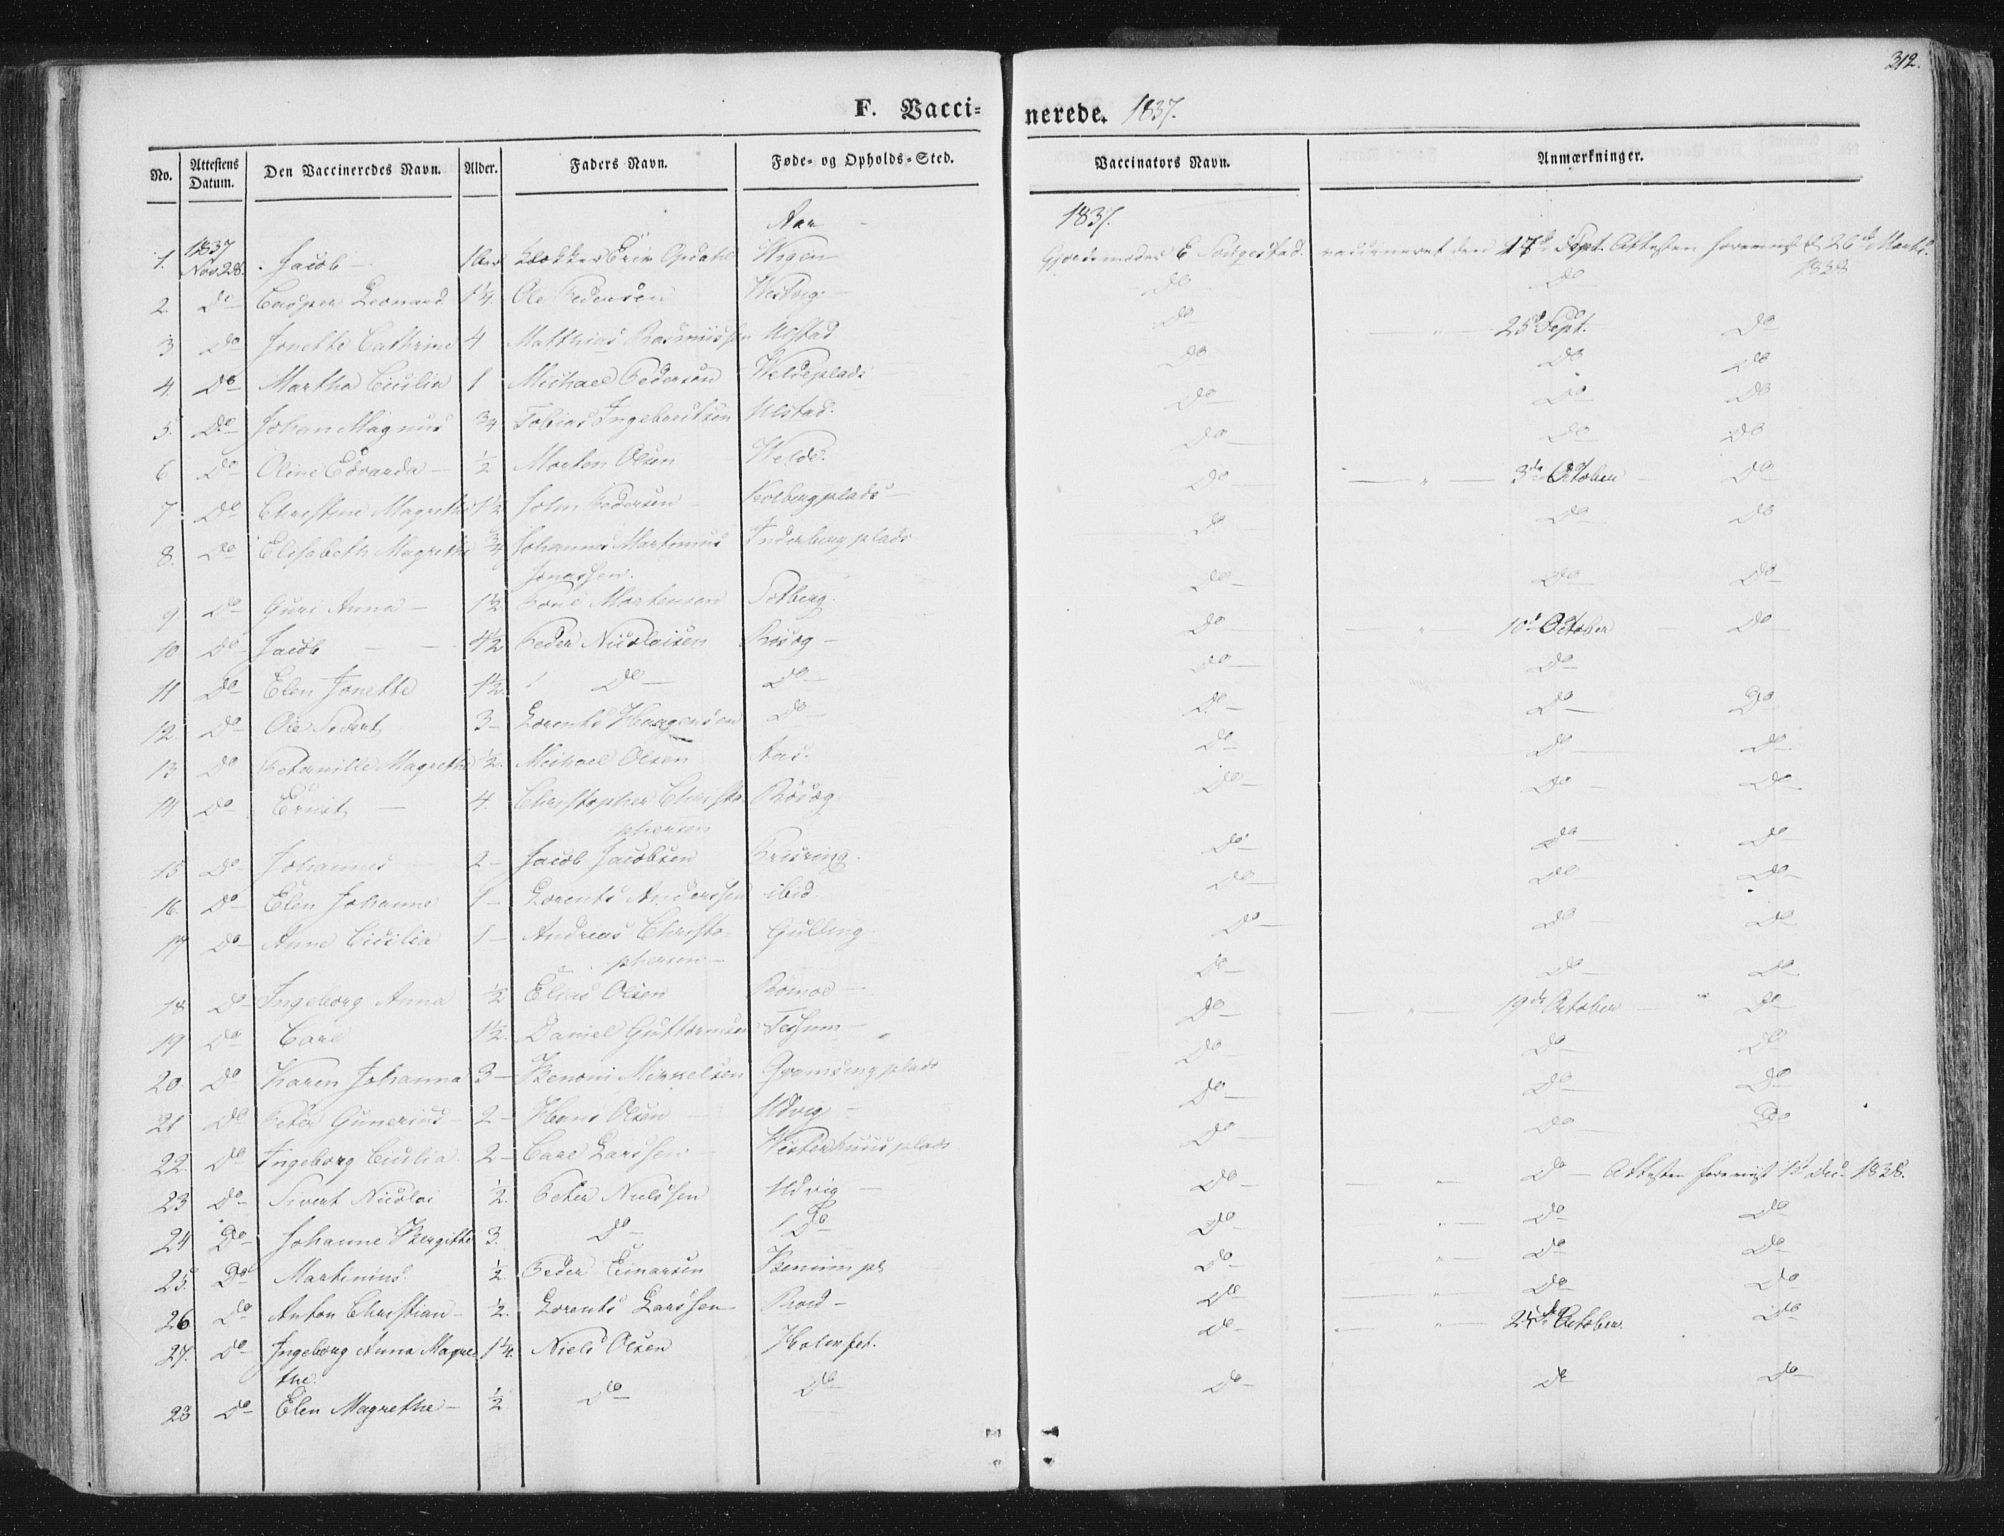 312.
F. Vaccinerede. 1837.
No. Attestens Datum. Den Vaccineredes Navn. Alder. Faders Navn. Føde- og Opholds-Sted. Vaccinators Navn. Anmærkninger.
1837.
1. 1837 Nov 28. Jacob Erik Opdahl Wigen Gjordemoder E vaccineret den 17d Sept. Attesten 26d Marts.
1838
2. Do Casper Leonard 1 1/4. Ole Pedersen Do Do
3 Do Jonette Cathrine 4 Matthias Rasmussen Ulstad Do 25d Sept. Do
4. Do Martha Cicilia 1 Michael Pedersen Weldeplads Do Do Do
5. Do Johan Magnus 3/4 Tobias Ingebrictsen Ulstad. Do Do Do
6 Do Oline Edvarda 1/2 Morten Olsen Welde. Do Do Do
7 Do Christine Magrethe 1 1/2 John Pedersen Kolbergplads Do 3de October Do
8. Do Elisabeth Magrethe 3/4 Johannes Martinus Inderbergplads Do Do Do
Jonassen.
9 Do Guri Anna 1 1/2 Mortensen Solberg. Do Do Do
10 Do Jacob 4 1/2 Peder Nicolaisen Rösæg Do 10d October Do
11 Do Elen Jonette 1 1/2. Do Do Do Do
12. Do Ole Sivert 3 Lorents Haagensen Do Do Do Do
13 Do Peternille Magrethe 1/2. Michael Olsen Aas. Do Do Do
14 Do Ernst 4. Christopher Christo- Rösæg Do Do Do
phersen
15 Do Johannes 2 Jacob Jacobsen Do Do Do
16. Do Elen Johanne 1 Lorents Anderssen ibid. Do Do Do
17 Do Anne Cicilia 1 Andreas Christo- Gulling Do Do Do
phersen
18 Do Ingeborg Anna 1/2 Elias Olsen Do Do Do
19 Do Carl 1 1/2. Daniel Guttormsen Do 19de October Do
20. Do Karen Johanna 3 Benoni Mikkelsen Gramsingplads Do Do Do
21 Do Peter Gunerius 2 Hans Olsen Udvig Do Do Do
22. Do Ingeborg Cicilia 2 Carl Larssen Westerhuusplads Do Do Do
23 Do Sivert Nicolai 1/2. Peter Nielssen Udvig Do Do Attesten 1d Dec. 1838.
24 Do Johanne Bergitte 3. Do Do Do Do Do
25. Do Martinius 1/2 Peder Einarsen Do Do Do
26 Do Anton Christian 1/2. Lorents Larssen Do Do Do
27. Do Ingeborg Anna Magre- 1 1/4. Niels Olsen Do 24de October. Do
the.
28 Do Elen Magrethe 1/2 Do Do Do Do Do